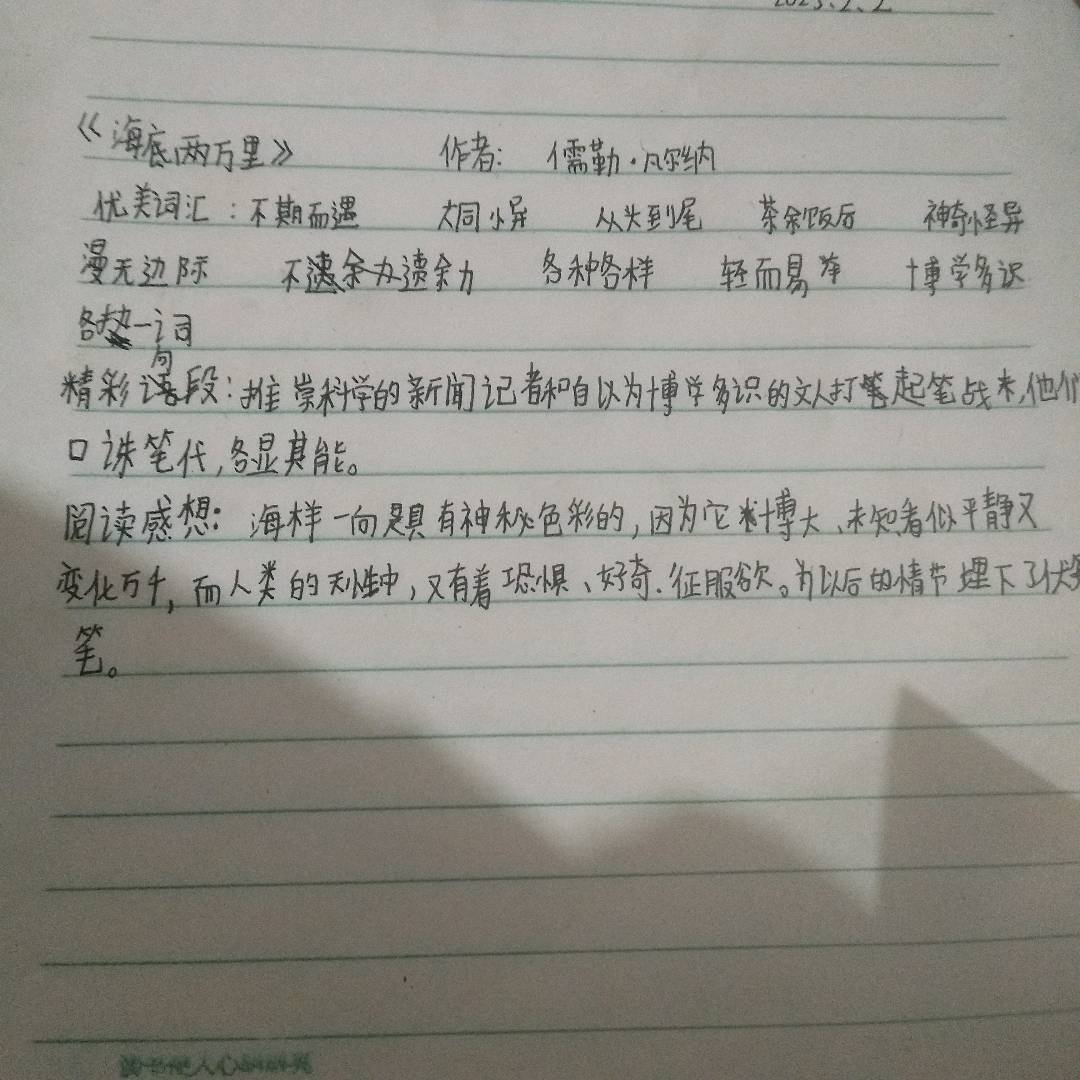 2023.2.2
《海底两万里》 作者：儒勒·凡尔纳
优美词汇：不期而遇 大同小异 从头到尾 茶余饭后 神奇怪异
漫无边际 不遗余力遗余力 各种各样 轻而易举 博学多识
各执一词
精彩语句段：推崇科学的新闻记者和自以为博学多识的文人打起笔战来,他们
口诛笔伐,各显其能。
阅读感想：海样一向是具有神秘色彩的,因为它博大、未知看似平静又
变化万千,而人类的天性中,又有着恐惧、好奇、征服欲。为以后的情节埋下了伏笔
笔。